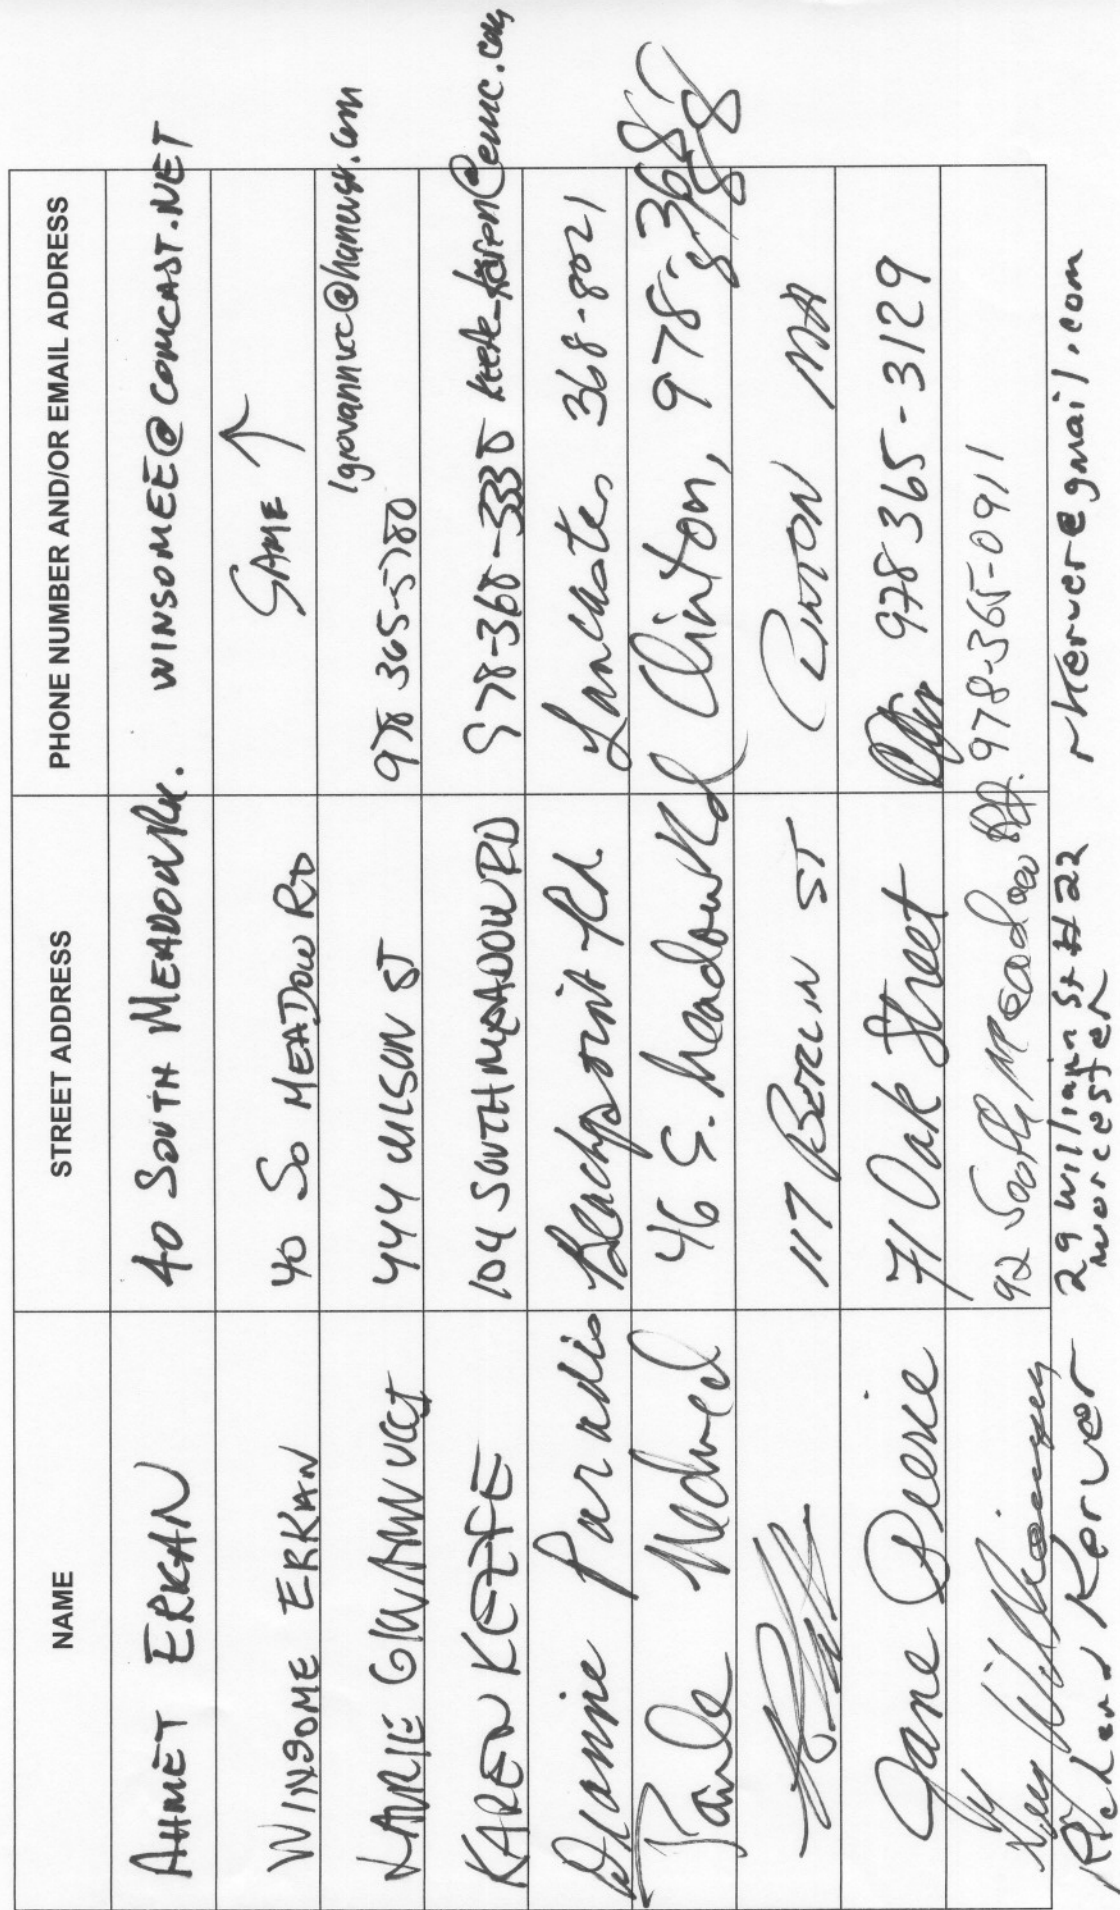 NAME STREET ADDRESS PHONE NUMBER AND/OR EMAIL ADDRESS
AHMET ERKAN 40 SOUTH MEADOW RD. WINSOMEE@COMCAST.NET
WINSOME ERKAN 40 SO MEADOW RD SAME ↑
LAURIE 444 WILSON ST 978 365-5780
KAREN KEEFE 104 SOUTH MEADOW RD 978-368-3338 keefe_karen@emc.com
Dianne Paradis Beachpoint Rd. Lancaster 368-8021
Paula Medved 46 S. Meadow Rd Clinton, 978-368-
117 BERLIN ST CLINTON MA
Jane 71 Oak Street 978 365-3129
92 South Meadow Rd. 978-365-0911
Richard Kerver 29 William St #22 rkerver@gmail.com
worcester